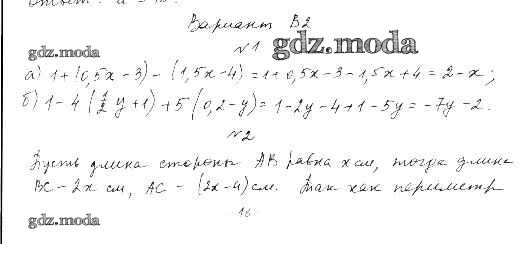 Вариант В2
№1
gdz.moda gdz.moda
а) 1+(0,5x-3)-(1,5x-4)=1+0,5x-3-1,5x+4=2-x;
б) 1-4(1/2y+1)+5(0,2-y)=1-2y-4+1-5y=-7y-2.
№2
Пусть длина стороны AB равна x см, тогда длина
BC - 2x см, AC - (2x-4) см. Так как периметр
16
gdz.moda